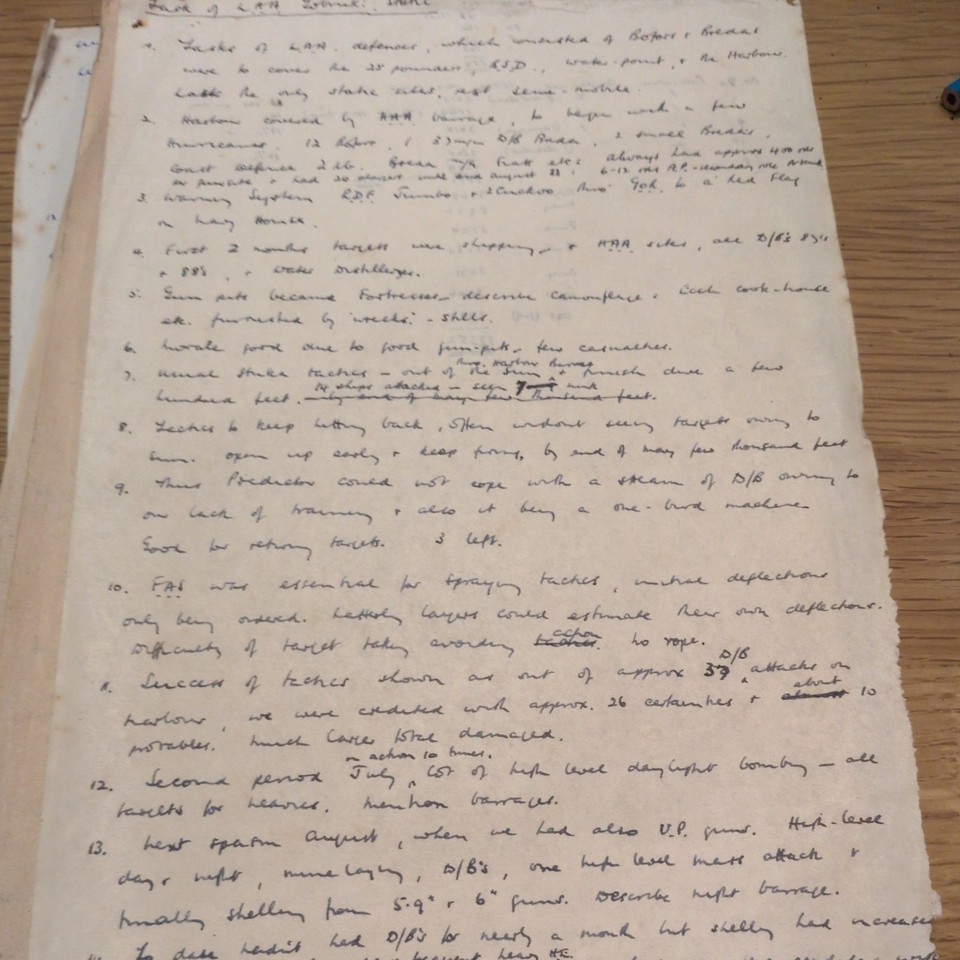 of LAA Tobruk.
1. Tasks of LAA. defences, which consisted of Bofors & Bredas
were to cover the 25 pounders, R.S.D., water-point, & the Harbour.
the only static sites, rest semi-mobile.
2. Harbour covered by HAA barrage, to begin with a few
Hurricanes. 12 Bofors, 1 37mm D/B Breda, 2 small Bredas,
Coast Defence 2 lb. Breda etc: always had approx 400 rds
per gun site & had 20 until end August 6-12 rds A.P. - secondary role
3. Warning System RDF Jumbo & 2 Cuckoo thro' GOR to a Red Flag
on Navy House.
4. First 2 months targets were shipping, & HAA sites, all D/B's 87's
& 88's, & Water Distilleries.
5. Gun pits became Fortresses - describe camouflage. Each cook-house
etc. furnished by 'wrecks'. - stills.
6. Morale good due to good gun-pits - few casualties.
thro. Harbour Barrage
7. Usual Stuka tactics - out of the sun & finish dive a few
14 ships attacked - seen 7 sunk
hundred feet. by end of May few thousand feet.
8. Tactics to keep hitting back, often without seeing targets owing to
sun. open up early & keep firing, by end of May few thousand feet
9. Thus Predictor could not cope with a stream of D/B owing to
our lack of training & also it being a one-bird machine.
Good for retiring targets. 3 left.
10. FAS was essential for spraying tactics, initial deflections
only being ordered. Latterly layers could estimate their own deflections.
action
Difficulty of target taking avoiding tactics. No rope.
D/B
11. Success of tactics shown as out of approx 37 attacks on
about
Harbour, we were credited with approx. 26 certainties & almost 10
probables. Much larger total damaged.
in action 10 times.
12. Second period July, lot of high level daylight bombing - all
targets for heavies. Mention barrages.
13. Next spasm August, when we had also U.P. guns. High-level
day & night, minelaying, D/B's, one high level mass attack &
finally shelling from 5.9" & 6" guns. Describe night barrage.
To date hadn't had D/B's for nearly a month but shelling had increased
frequent heavy